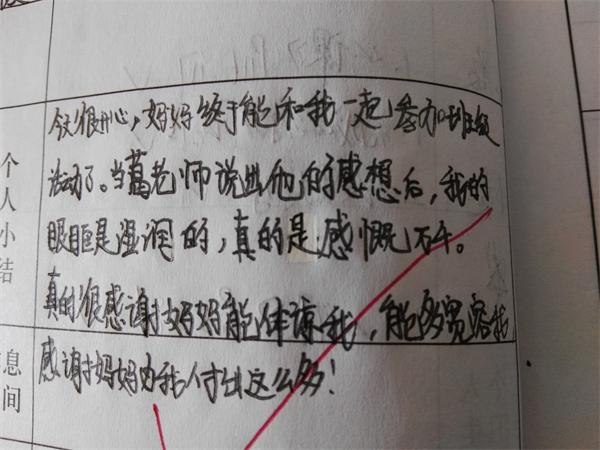 今天很开心，妈妈终于能和我一起参加班级
活动了。当葛老师说出他的感想后，我的
眼眶是湿润的，真的是感慨万千。
真的很感谢妈妈能体谅我，能够宽容我
感谢妈妈为我付出这么多！
个
人
小
结
息
间